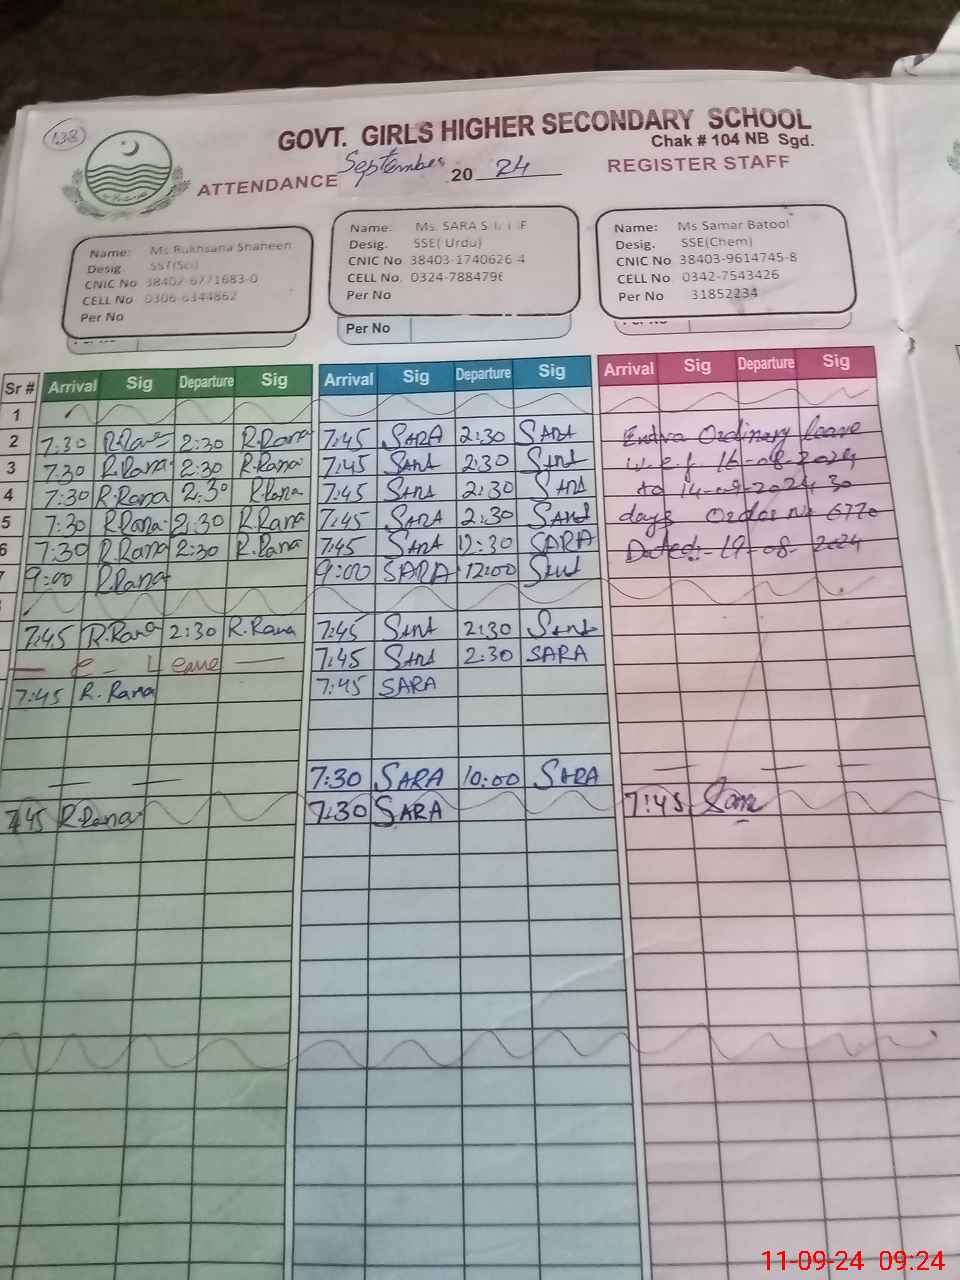 138
GOVT. GIRLS HIGHER SECONDARY SCHOOL
Chak # 104 NB Sgd.
ATTENDANCE September 2024 REGISTER STAFF
Name: Ms Rukhsana Shaheen
Desig. SST(Sci)
CNIC No 38402-6771683-0
CELL No 0306-6344862
Per No
Name: Ms. SARA
Desig. SSE( Urdu)
CNIC No 38403-1740626 4
CELL No. 0324-788479
Per No
Per No
Name: Ms Samar Batool
Desig. SSE(Chem)
CNIC No 38403-9614745-8
CELL No 0342-7543426
Per No 31852234
Sr # Arrival Sig Departure Sig Arrival Sig Departure Sig Arrival Sig Departure Sig
1
2 7:30 R.Rana 2:30 R.Rana 7:45 SARA 2:30 SARA Extra Ordinary leave
3 7:30 R.Rana 2:30 R.Rana 7:45 SARA 2:30 SARA w.e.f. 16-08-2024
4 7:30 R.Rana 2:30 R.Rana 7:45 SARA 2:30 SARA to 14-09-2024 30
5 7:30 R.Rana 2:30 R.Rana 7:45 SARA 2:30 SARA days Order No 6770
6 7:30 R.Rana 2:30 R.Rana 7:45 SARA 12:30 SARA Dated:-19-08-2024
9:00 R.Rana 9:00 SARA 12:00 SARA
7:45 R.Rana 2:30 R.Rana 7:45 SARA 2:30 SARA
Leave 7:45 SARA 2:30 SARA
7:45 R.Rana 7:45 SARA
7:30 SARA 10:00 SARA
7:45 R.Rana 7:30 SARA 7:45
11-09-24 09:24